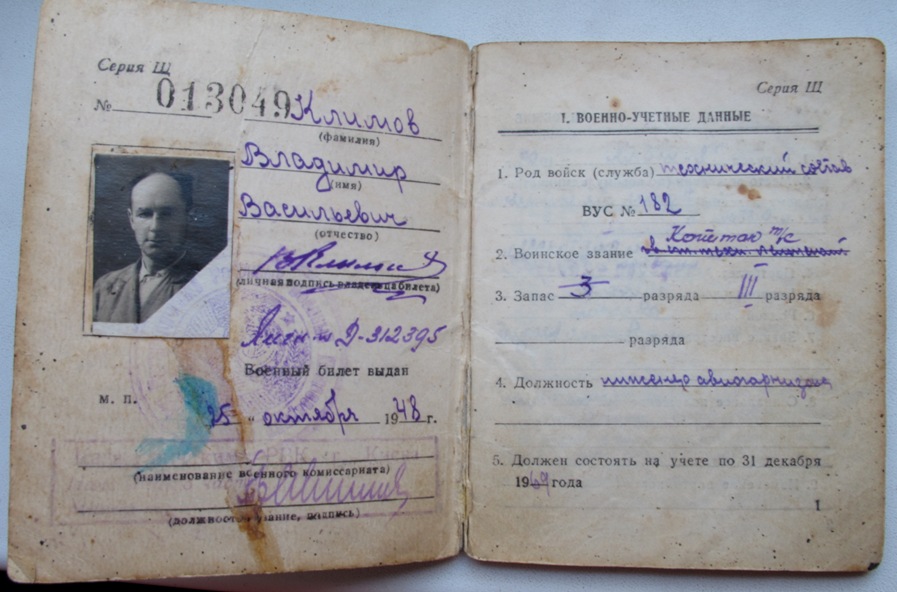 Серия Щ
№ 013049
Климов
(фамилия)
Владимир
(имя)
Васильевич
(отчество)
(личная подпись владельца билета)
Д-312395
Военный билет выдан
М. П.
"25" октября 1948 г.
(наименование военного комиссариата)
(должность, звание, подпись)
Серия Щ
I. ВОЕННО-УЧЕТНЫЕ ДАННЫЕ
1. Род войск (служба) технический состав
ВУС № 182
т/с
2. Воинское звание
3. Запас 3 разряда III разряда
разряда
4. Должность инженер
5. Должен состоять на учете по 31 декабря
1969 года
1